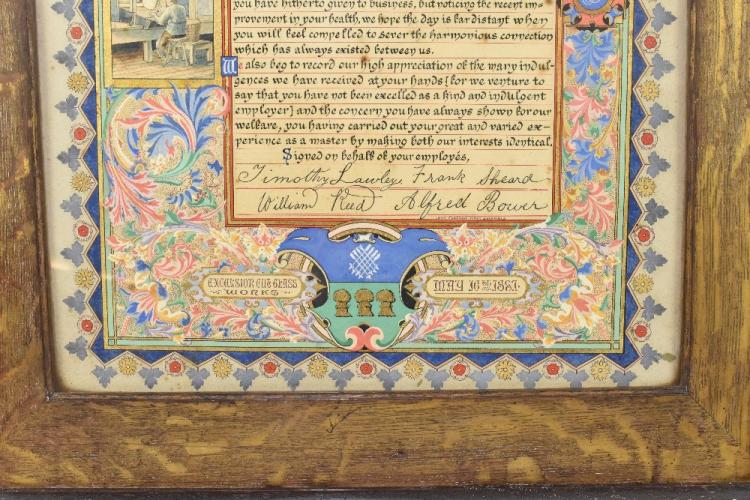 you have hitherto given to business, but noticing the recent im-
provement in your health, we hope the day is far distant when
you will feel compelled to sever the harmonious connection
which has always existed between us.
We also beg to record our high appreciation of the many indul-
gences we have received at your hands [for we venture to
say that you have not been excelled as a kind and indulgent
employer] and the concern you have always shown for our
welfare, you having carried out your great and varied ex-
perience as a master by making both our interests identical.
Signed on behalf of your employés,
Timothy Lawley. Frank Sheard
William Reed Alfred Bower
EXCELSIOR CUT GLASS
WORKS
MAY 16TH 1881.